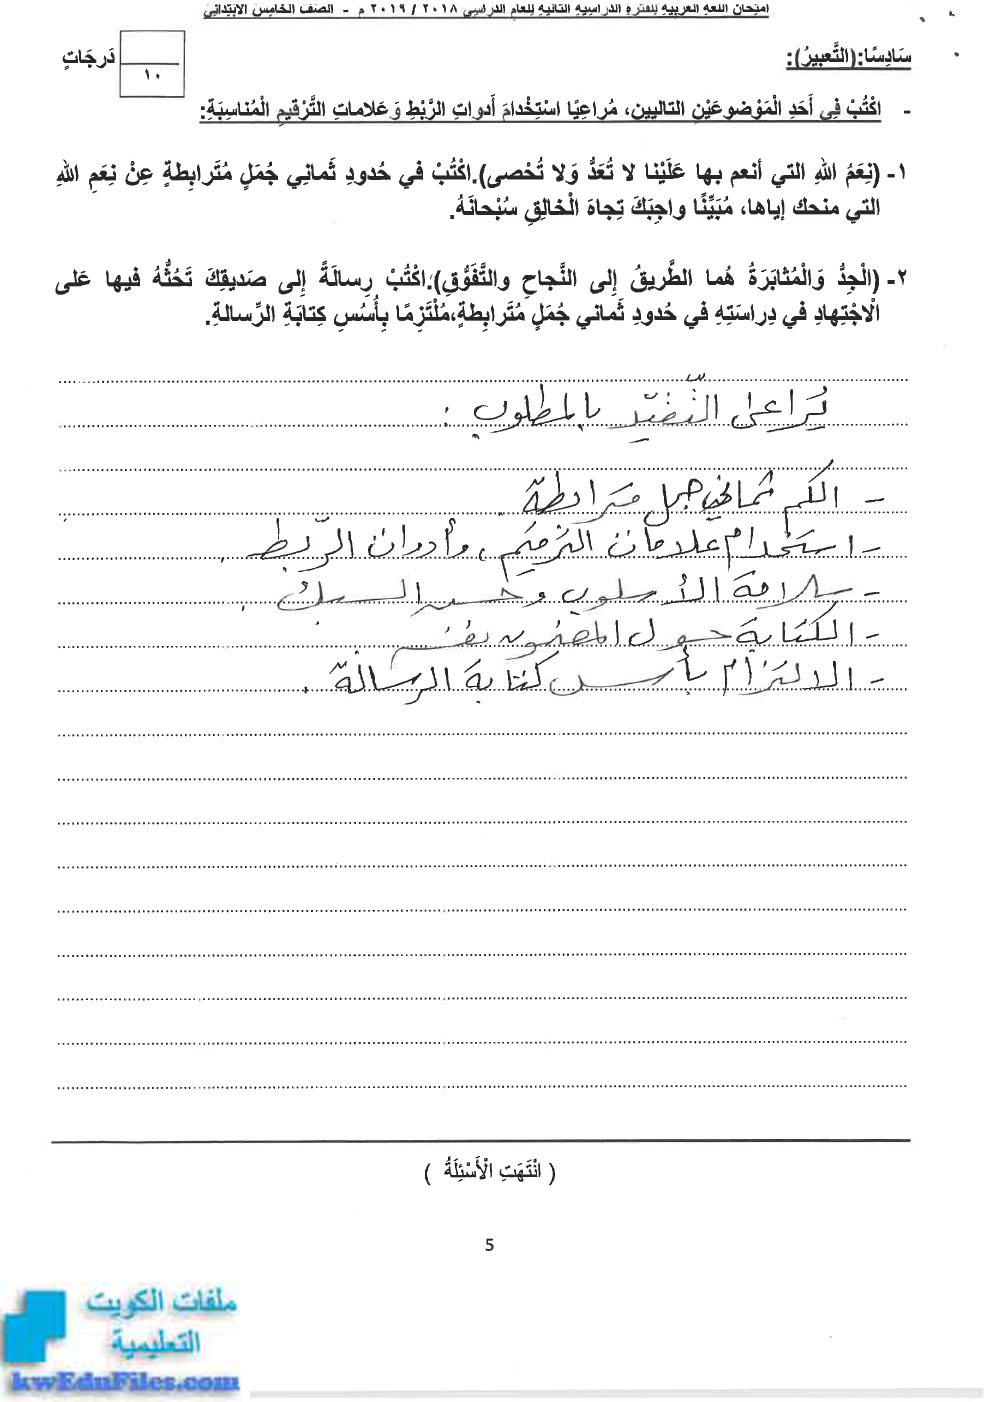 امتحان اللغة العربية للفترة الدراسية الثانية للعام الدراسي ٢٠١٨ / ٢٠١٩ م - الصف الخامس الابتدائي
سَادِسًا: (التَّعبيرُ):
دَرجَاتٍ
١٠
- اكْتُبْ فِي أَحَدِ الْمَوْضوعَيْنِ التاليين، مُراعِيًا اسْتِخْدامَ أَدَواتِ الرَّبْطِ وَعَلاماتِ التَّرْقيمِ الْمُناسِبَةِ:
١- (نِعَمُ اللهِ التي أنعم بها عَلَيْنا لا تُعَدُّ وَلا تُحْصى).اكْتُبْ في حُدودِ ثَماني جُمَلٍ مُتَرابِطةٍ عِنْ نِعَمِ اللهِ
التي منحك إياها، مُبَيِّنًا واجِبَكَ تِجاهَ الْخالِقِ سُبْحانَهُ.
٢- (الْجِدُّ وَالْمُثابَرَةُ هُما الطَّريقُ إِلى النَّجاحِ والتَّفَوُّقِ).اكْتُبْ رِسالَةً إِلى صَديقِكَ تَحُثُّهُ فيها عَلى
الْاجْتِهادِ في دِراسَتِهِ في حُدودِ ثَماني جُمَلٍ مُتَرابِطةٍ،مُلْتَزِمًا بِأُسُسِ كِتابَةِ الرِّسالةِ.
يُراعى التَّقيّد بالمطلوب :
- الكم ثماني جمل مترابطة .
- استخدام علامات الترقيم ، وأدوات الرّبط .
- سلامة الأسلوب وحسن السبك .
- الكتابة حول المضمون نفسه .
- الالتزام بأسس كتابة الرسالة .
( انْتَهَتِ الْأَسْئِلَةُ )
5
ملفات الكويت
التعليمية
kwEduFiles.com